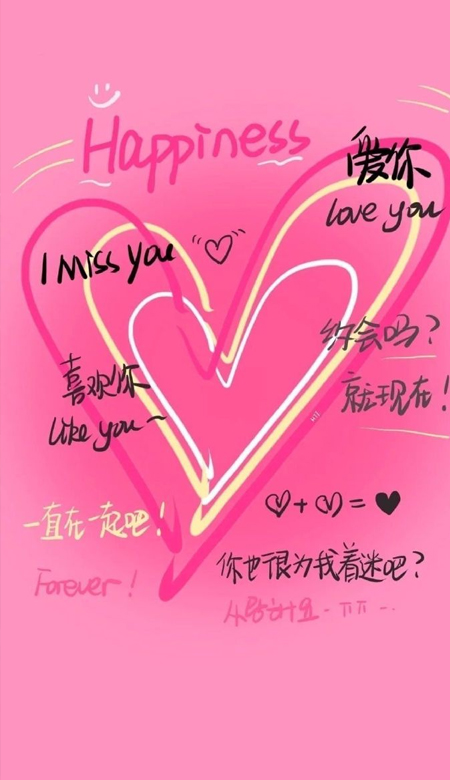 Happiness
爱你
love you
I Miss you
约会吗?
就现在!
喜欢你
like you~
一直在一起吧!
Forever!
你也很为我着迷吧?
사랑해요-ㅠㅠ--.